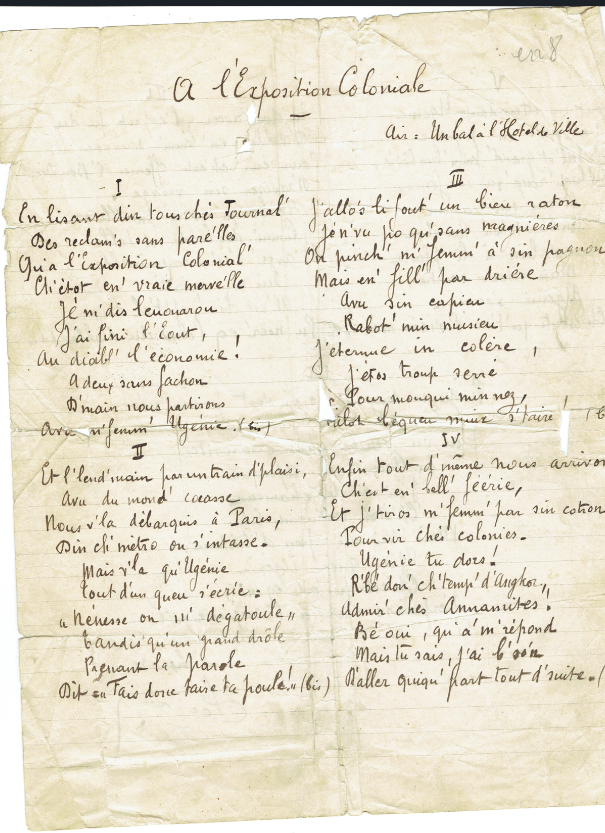 A l'Exposition Coloniale
Air : Un bal à l'Hotel de Ville
I
En lisant din tous chés Journal'
Des reclam's sans pare'lles
Qu'a l'Exposition Colonial'
Ch'étot en' vraie merve'lle
Jé m'dis
J'ai fini l'Eout,
Au diabl' l'économie !
A deux sans fachon
D'main nous partirons
Avu m'femm' Ugénie. (bis)
II
Et l'lend'main par un train d'plaisi,
Avu du mond' cocasse
Nous v'la débarquis à Paris,
Din ch'métro on s'intasse.
Mais v'la qu'Ugénie
tout d'un queu s'écrie :
"Nénesse on m' dégatoule"
Tandis qu'un grand drôle
Pregnant la parole
Dit "Tais donc taire ta poule!" (bis)
III
J'allos li fout' un bieu raton
Jé n'vu po qu'sans magniéres
On punch' m' femm' à sin pagnon
Mais en' fill' par driére
Avu sin capieu
Rabot' min musieu
J'éternue in colère,
J'étos troup serré
Pour mouqui min nez,
queu mieux s'taire !
IV
Enfin tout d'même nous
Ch'est en' bell' féérie,
Et j'tiros m'femm' par sin
Pour vir chés colonies.
Ugénie tu dors !
R'bé don' ch'temp' d'Angkor,
Admir' chés Annamites !
Bé oui, qu'a m'répond
Mais tu sais, j'ai b'son
D'aller quiqu' part tout d'suite. (